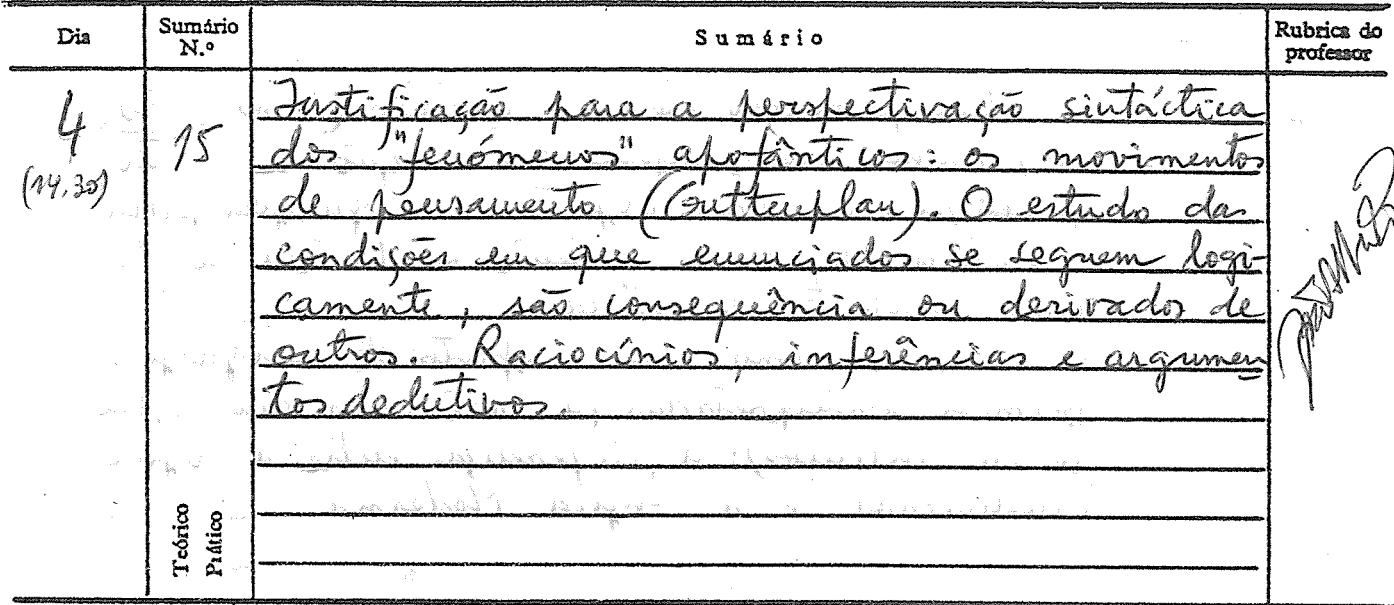 Dia
Sumário N.º
Sumário
Rubrica do professor
4
(14,30)
15
Justificação para a perspectivação sintáctica
dos "fenómenos" apofânticos: os movimentos
de pensamento (Guttenplan). O estudo das
condições em que enunciados se seguem logi-
camente, são consequência ou derivados de
outros. Raciocínios, inferências e argumen
tos dedutivos.
Teórico
Prático